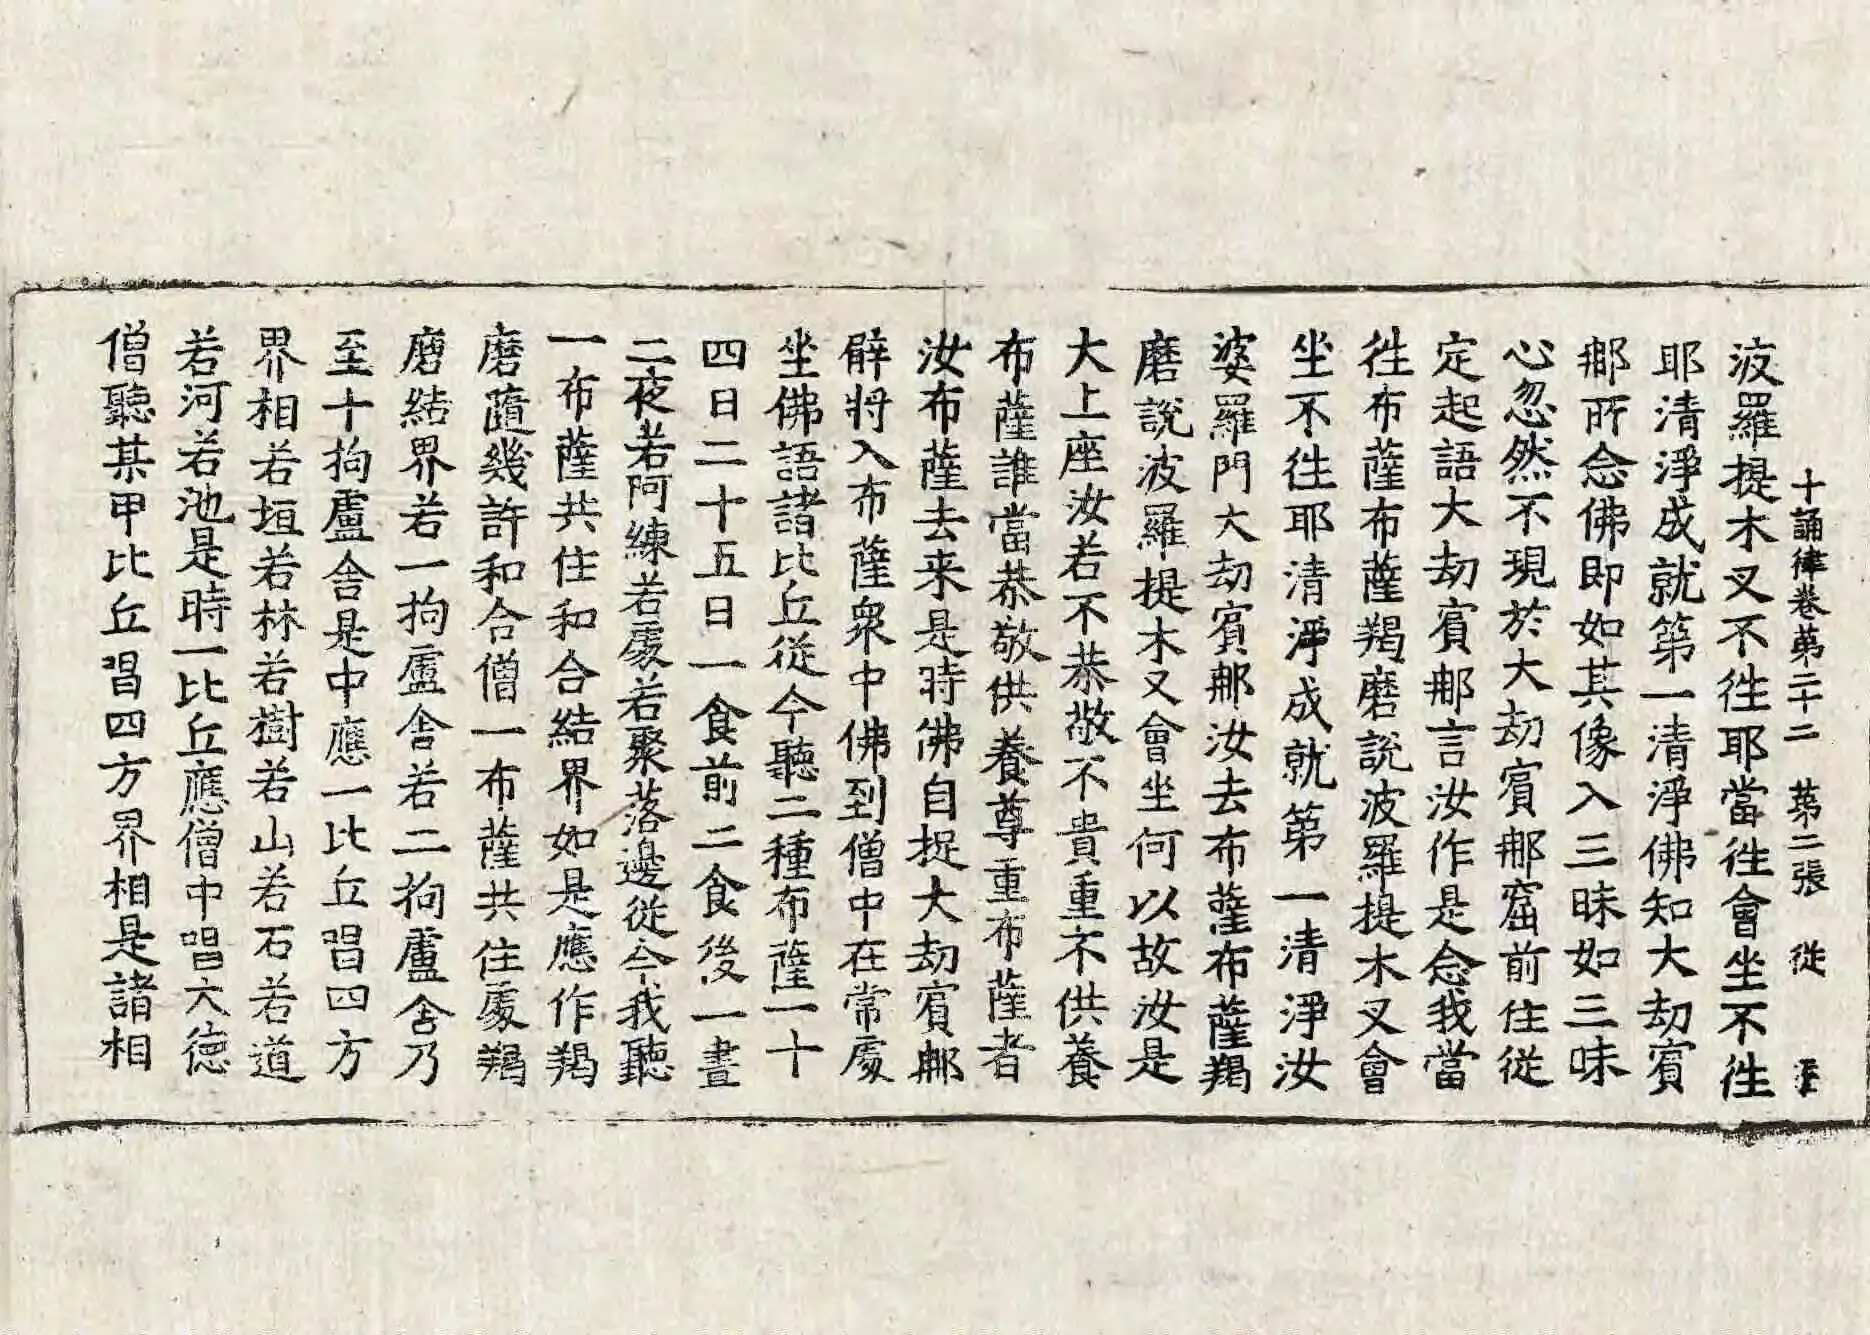 十誦律卷第二十二 第二張 從
波羅提木叉不徃耶當徃會坐不徃
耶清淨成就第一清淨佛知大劫賓
那所念佛即如其像入三昧如三昧
心忽然不現於大劫賓那窟前住從
定起語大劫賓那言汝作是念我當
徃布薩布薩羯磨說波羅提木叉會
坐不徃耶清淨成就第一清淨汝
婆羅門大劫賓那汝去布薩布薩羯
磨說波羅提木叉會坐何以故汝是
大上座汝若不恭敬不貴重不供養
布薩誰當恭敬供養尊重布薩者
汝布薩去来是時佛自捉大劫賓那
臂將入布薩衆中佛到僧中在常處
坐佛語諸比丘從今聽二種布薩一十
四日二十五日一食前二食後一晝
二夜若阿練若處若聚落邊從今我聽
一布薩共住和合結界如是應作羯
磨隨幾許和合僧一布薩共住處羯
磨結界若一拘盧舎若二拘盧舎乃
至十拘盧舎是中應一比丘唱四方
界相若垣若林若樹若山若石若道
若河若池是時一比丘應僧中唱大德
僧聽某甲比丘唱四方界相是諸相